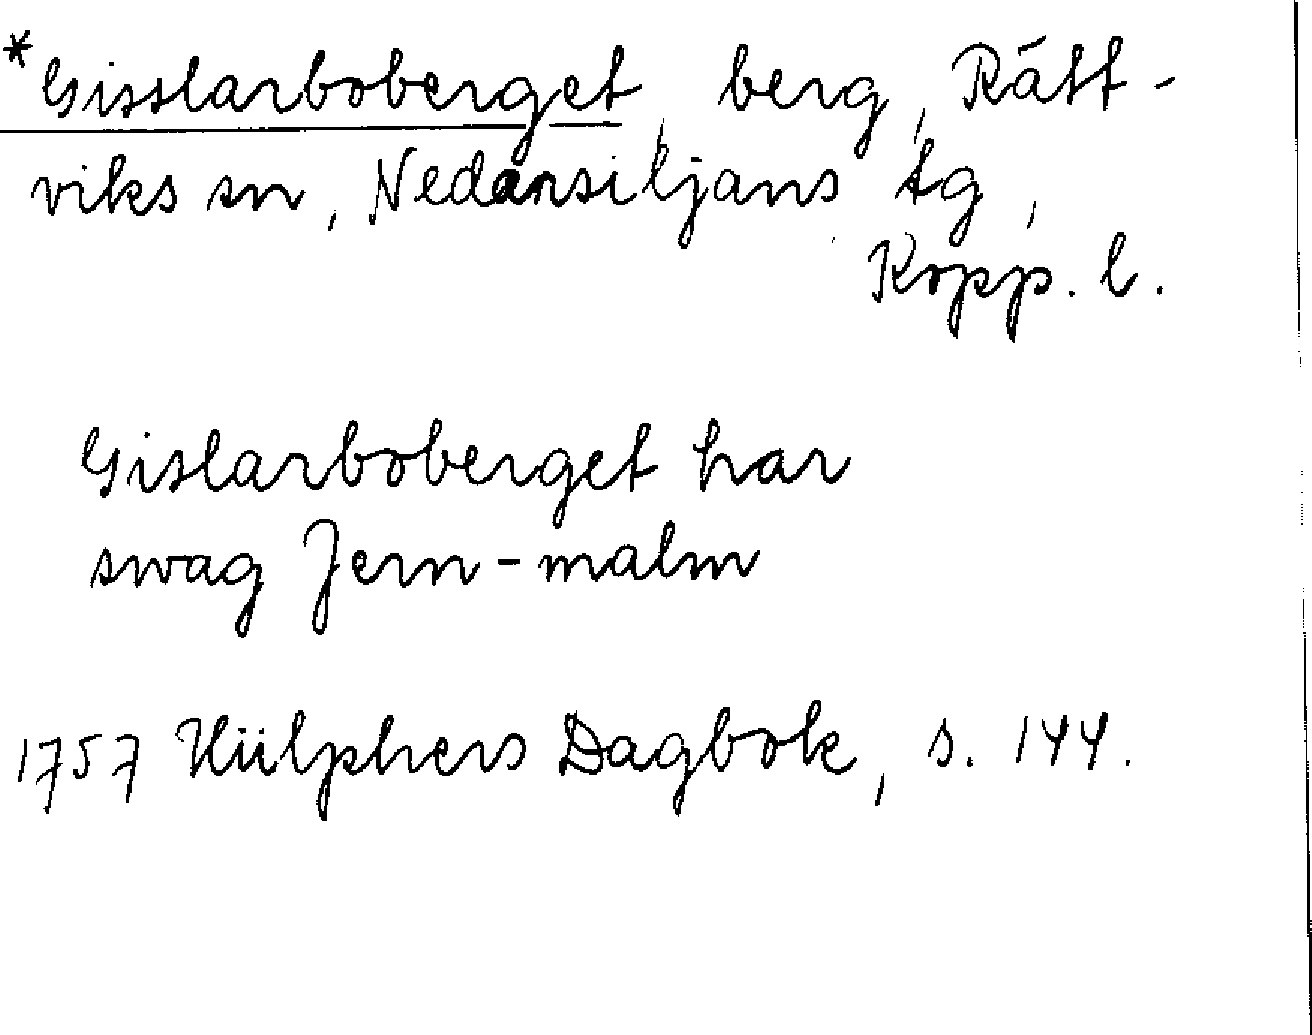 *Gisslarboberget, berg, Rätt-
viks sn, Nedansiljans tg,
Kopp. l.
Gislarboberget har
swag Jern-malm
1757 Hülphers Dagbok, s. 144.